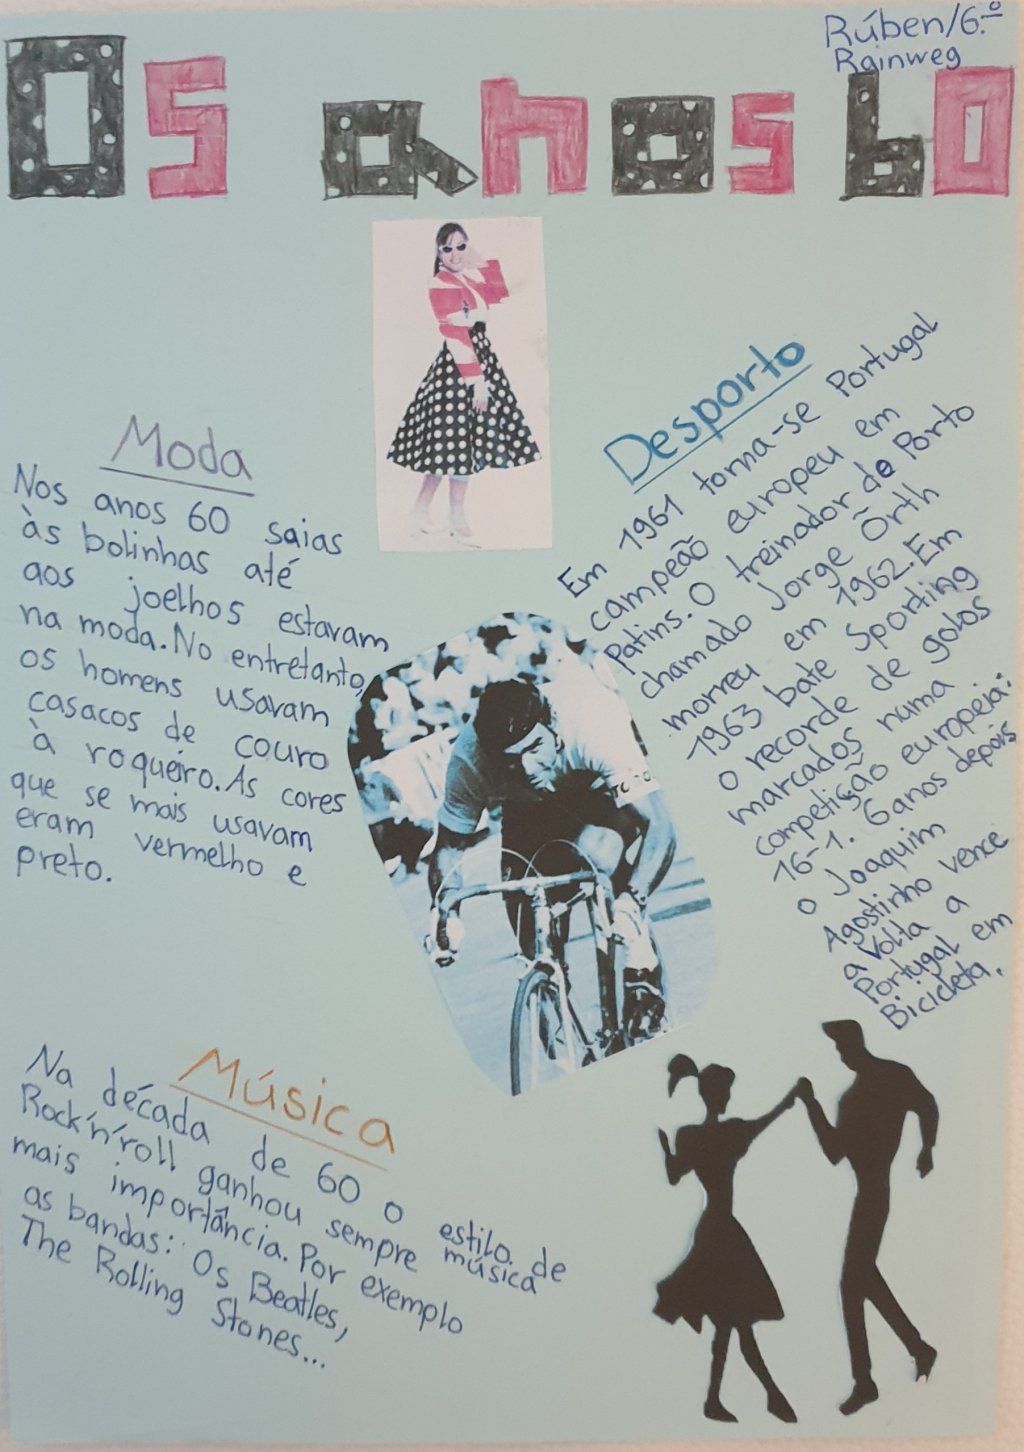 Rúben/6.º
Rainweg
Os anos 60
Moda
Nos anos 60 saias
às bolinhas até
aos joelhos estavam
na moda. No entretanto,
os homens usavam
casacos de couro
à roqueiro. As cores
que se mais usavam
eram vermelho e
preto.
Desporto
Em 1961 torna-se Portugal
campeão europeu em
Patins. O treinador de Porto
chamado Jorge Õrth
morreu em 1962. Em
1963 bate Sporting
o recorde de golos
marcados numa
competição europeia:
16-1. 6 anos depois
o Joaquim
Agostinho vence
a Volta a
Portugal em
Bicicleta.
Música
Na década de 60 o estilo de
Rock'n'roll ganhou sempre música
mais importância. Por exemplo
as bandas: Os Beatles,
The Rolling Stones...